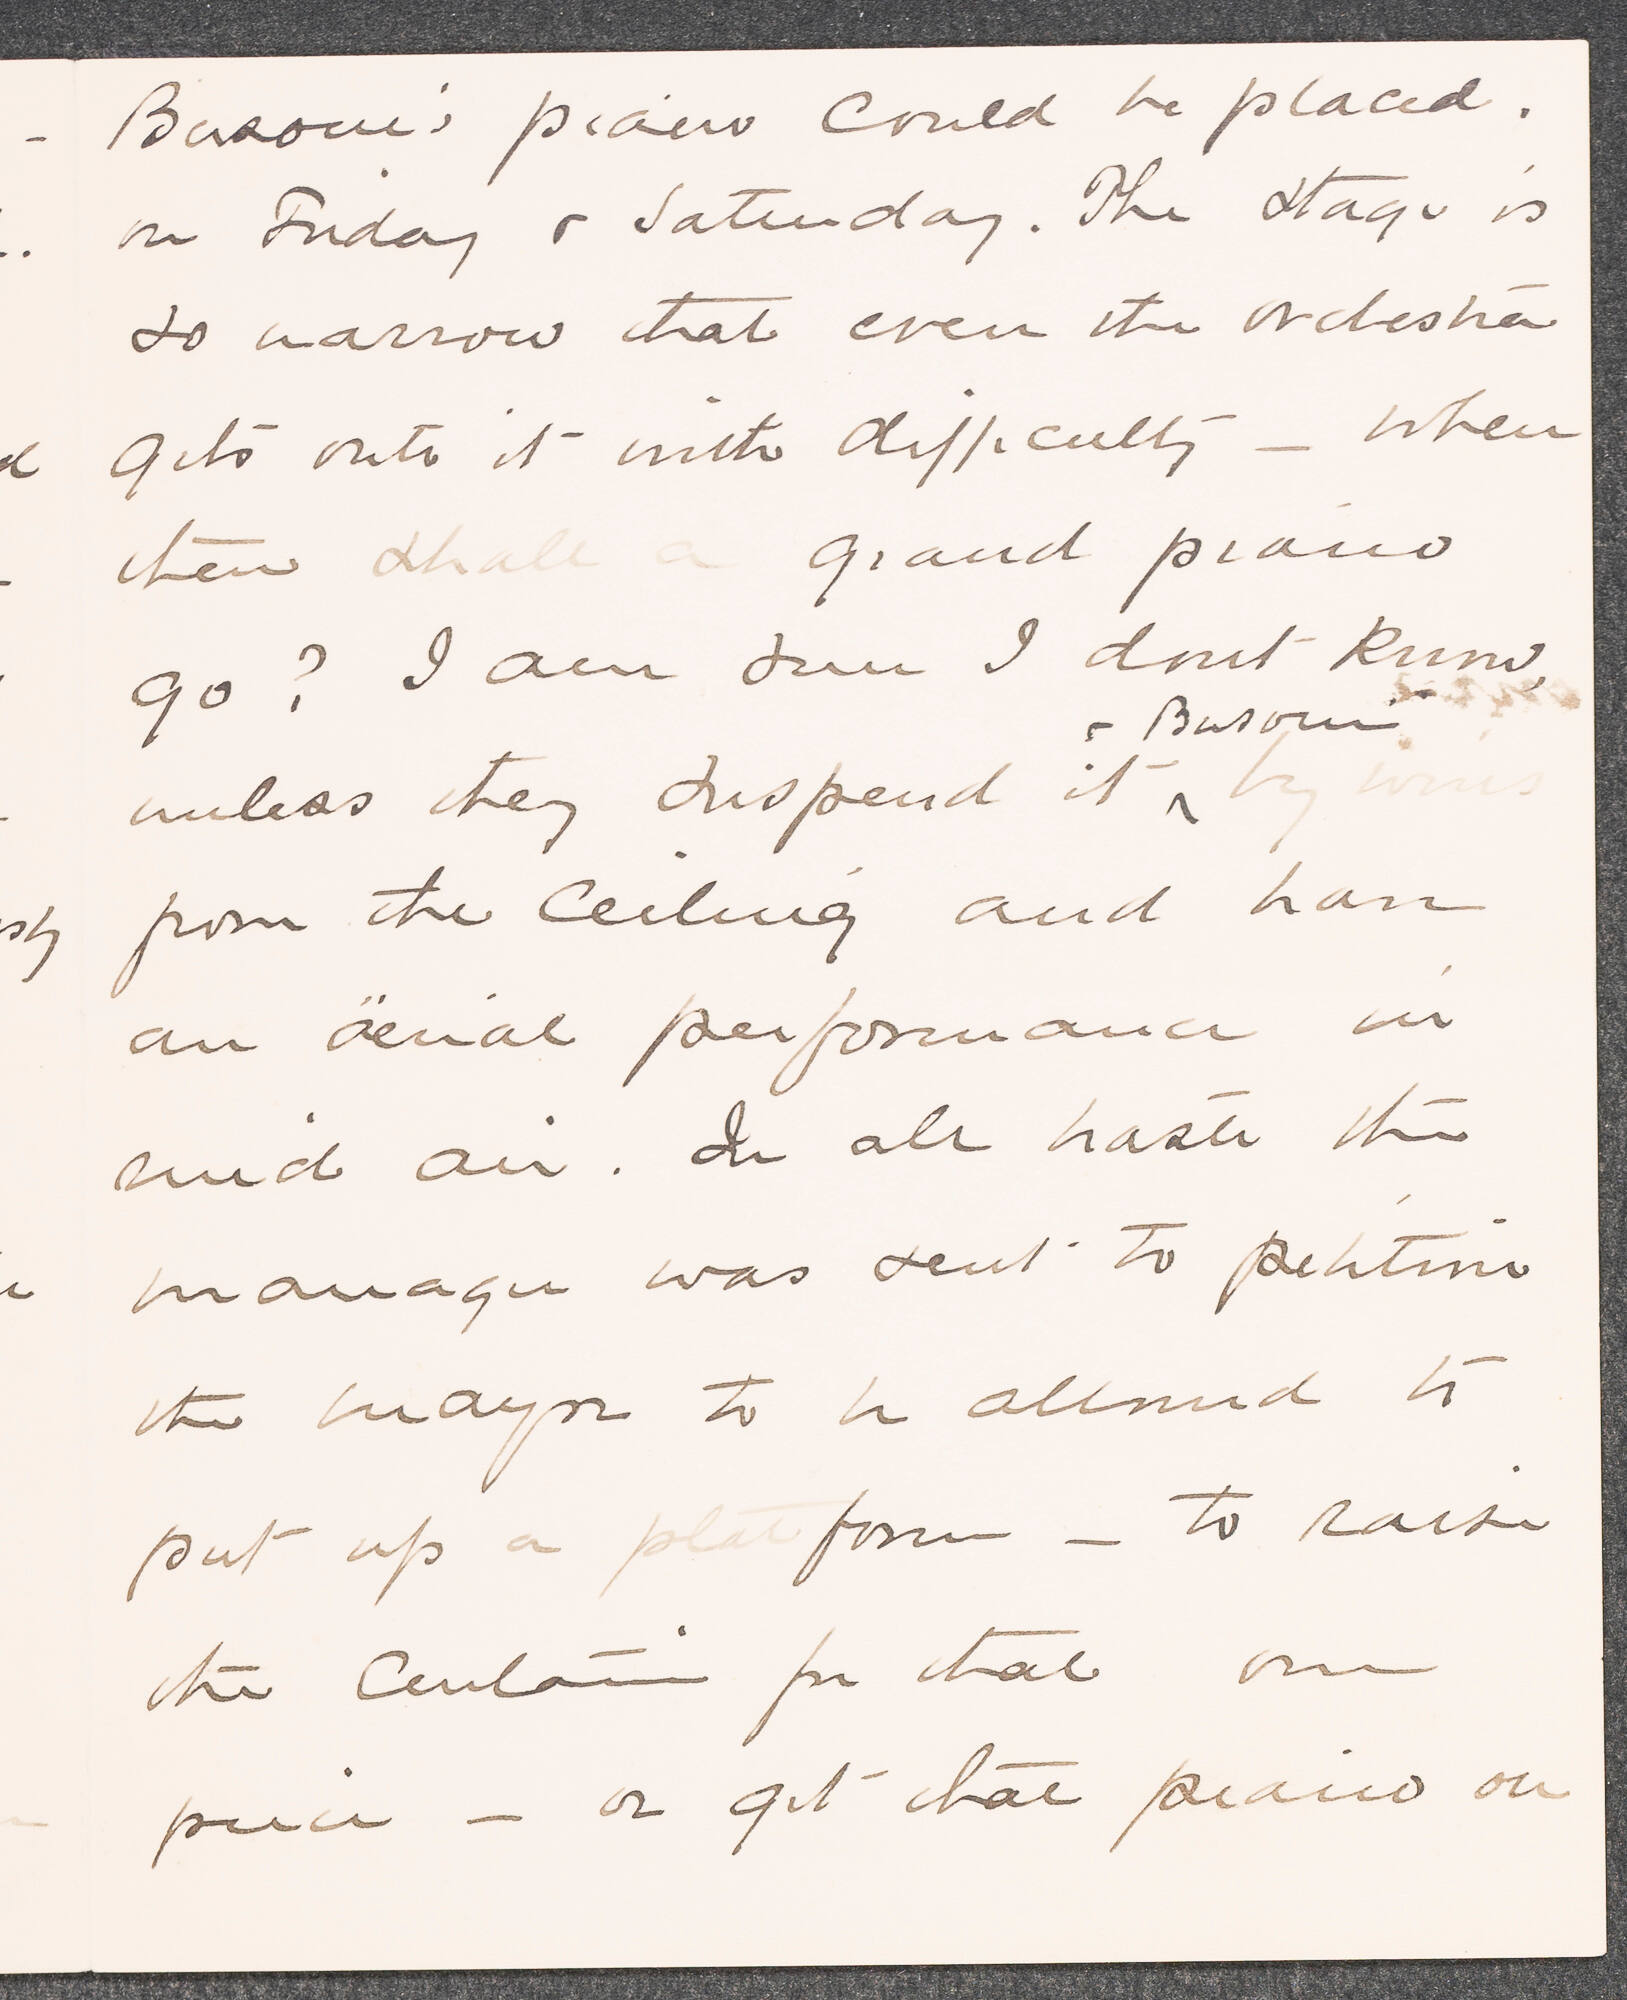 Busoni's piano could be placed.
on Friday & Saturday. The stage is
so narrow that even the orchestra
gets onto it with difficulty – when
then shall a grand piano
go? I am sure I dont know,
& Busoni
unless they suspend it ^ by wires
from the ceiling and have
an äerial performance in
mid air. In all haste the
manager was sent to petition
the mayor to be allowed to
put up a platform – to raise
the curtain for that one
piece – or get that piano on